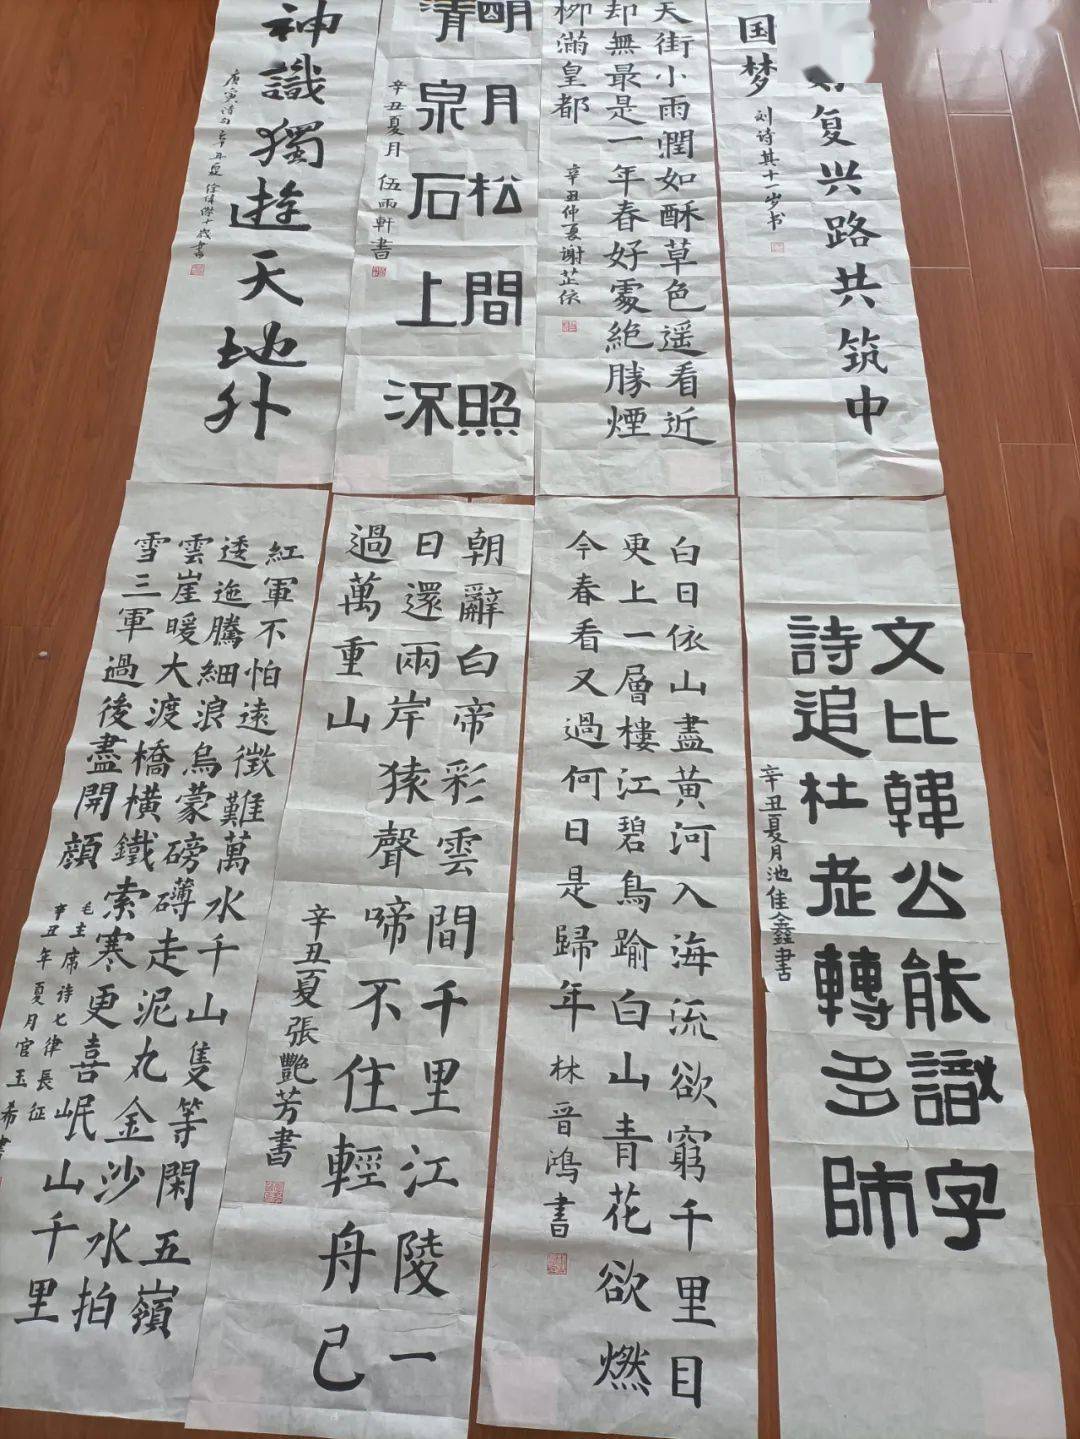 复兴路共筑中
国梦
刘诗其十一岁书
天街小雨潤如酥草色遥看近
却無最是一年春好處絶勝煙
柳滿皇都
辛丑仲夏谢芷依
明月松間照
清泉石上流
辛丑夏月 伍雨軒書
神識獨遊天地外
唐寅诗句辛丑夏徐偉傑十歲書
文比韓公能識字
詩追杜老轉多師
辛丑夏月池佳鑫書
白日依山盡黄河入海流欲窮千里目
更上一層樓江碧鳥踰白山青花欲燃
今春看又過何日是歸年
林晋鸿書
朝辭白帝彩雲間千里江陵一
日還兩岸猿聲啼不住輕舟已
過萬重山
辛丑夏張艷芳書
紅軍不怕遠徵難萬水千山隻等閑五嶺
逶迤騰細浪烏蒙磅礴走泥丸金沙水拍
雲崖暖大渡橋橫鐵索寒更喜岷山千里
雪三軍過後盡開顔
毛主席诗七律長征
辛丑年夏月官玉希書